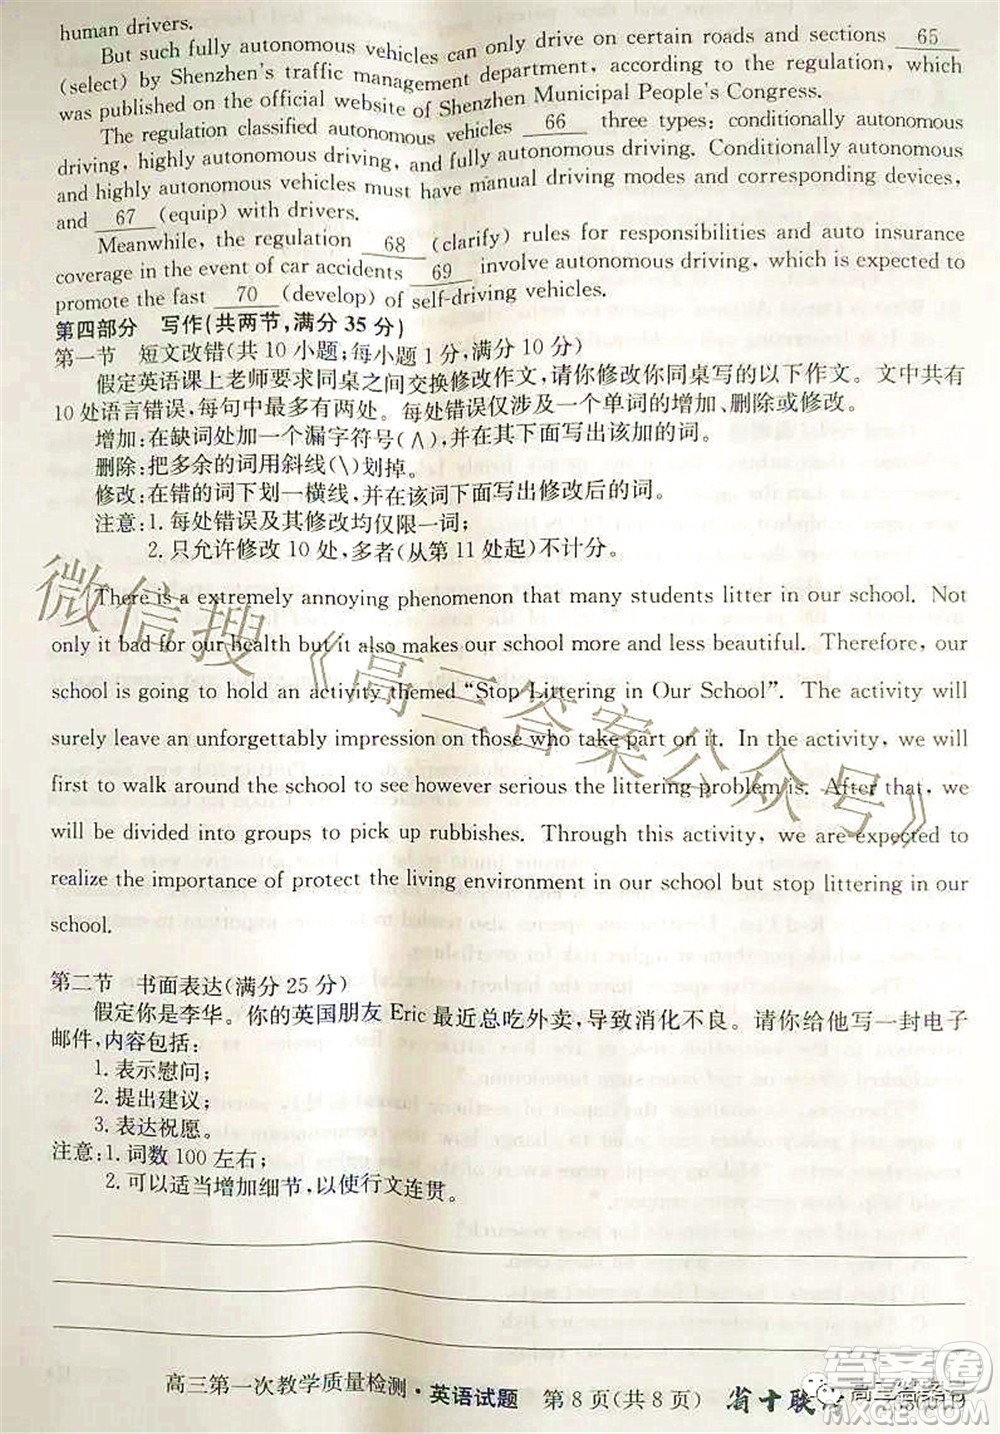 human drivers.
But such fully autonomous vehicles can only drive on certain roads and sections 65
(select) by Shenzhen's traffic management department, according to the regulation, which
was published on the official website of Shenzhen Municipal People's Congress.
The regulation classified autonomous vehicles 66 three types: conditionally autonomous
driving, highly autonomous driving, and fully autonomous driving. Conditionally autonomous
and highly autonomous vehicles must have manual driving modes and corresponding devices,
and 67 (equip) with drivers.
Meanwhile, the regulation 68 (clarify) rules for responsibilities and auto insurance
coverage in the event of car accidents 69 involve autonomous driving, which is expected to
promote the fast 70 (develop) of self-driving vehicles.
第四部分 写作(共两节,满分 35 分)
第一节 短文改错(共 10 小题;每小题 1 分,满分 10 分)
假定英语课上老师要求同桌之间交换修改作文,请你修改你同桌写的以下作文。文中共有
10 处语言错误,每句中最多有两处。每处错误仅涉及一个单词的增加、删除或修改。
增加:在缺词处加一个漏字符号(∧),并在其下面写出该加的词。
删除:把多余的词用斜线(\)划掉。
修改:在错的词下划一横线,并在该词下面写出修改后的词。
注意:1. 每处错误及其修改均仅限一词;
2. 只允许修改 10 处,多者(从第 11 处起)不计分。
There is a extremely annoying phenomenon that many students litter in our school. Not
only it bad for our health but it also makes our school more and less beautiful. Therefore, our
school is going to hold an activity themed “Stop Littering in Our School”. The activity will
surely leave an unforgettably impression on those who take part on it. In the activity, we will
first to walk around the school to see however serious the littering problem is. After that, we
will be divided into groups to pick up rubbishes. Through this activity, we are expected to
realize the importance of protect the living environment in our school but stop littering in our
school.
第二节 书面表达(满分 25 分)
假定你是李华。你的英国朋友 Eric 最近总吃外卖,导致消化不良。请你给他写一封电子
邮件,内容包括:
1. 表示慰问;
2. 提出建议;
3. 表达祝愿。
注意:1. 词数 100 左右;
2. 可以适当增加细节,以使行文连贯。
高三第一次教学质量检测·英语试题 第 8 页(共 8 页) 省十联
高三答案号
微信搜《高三答案公众号》